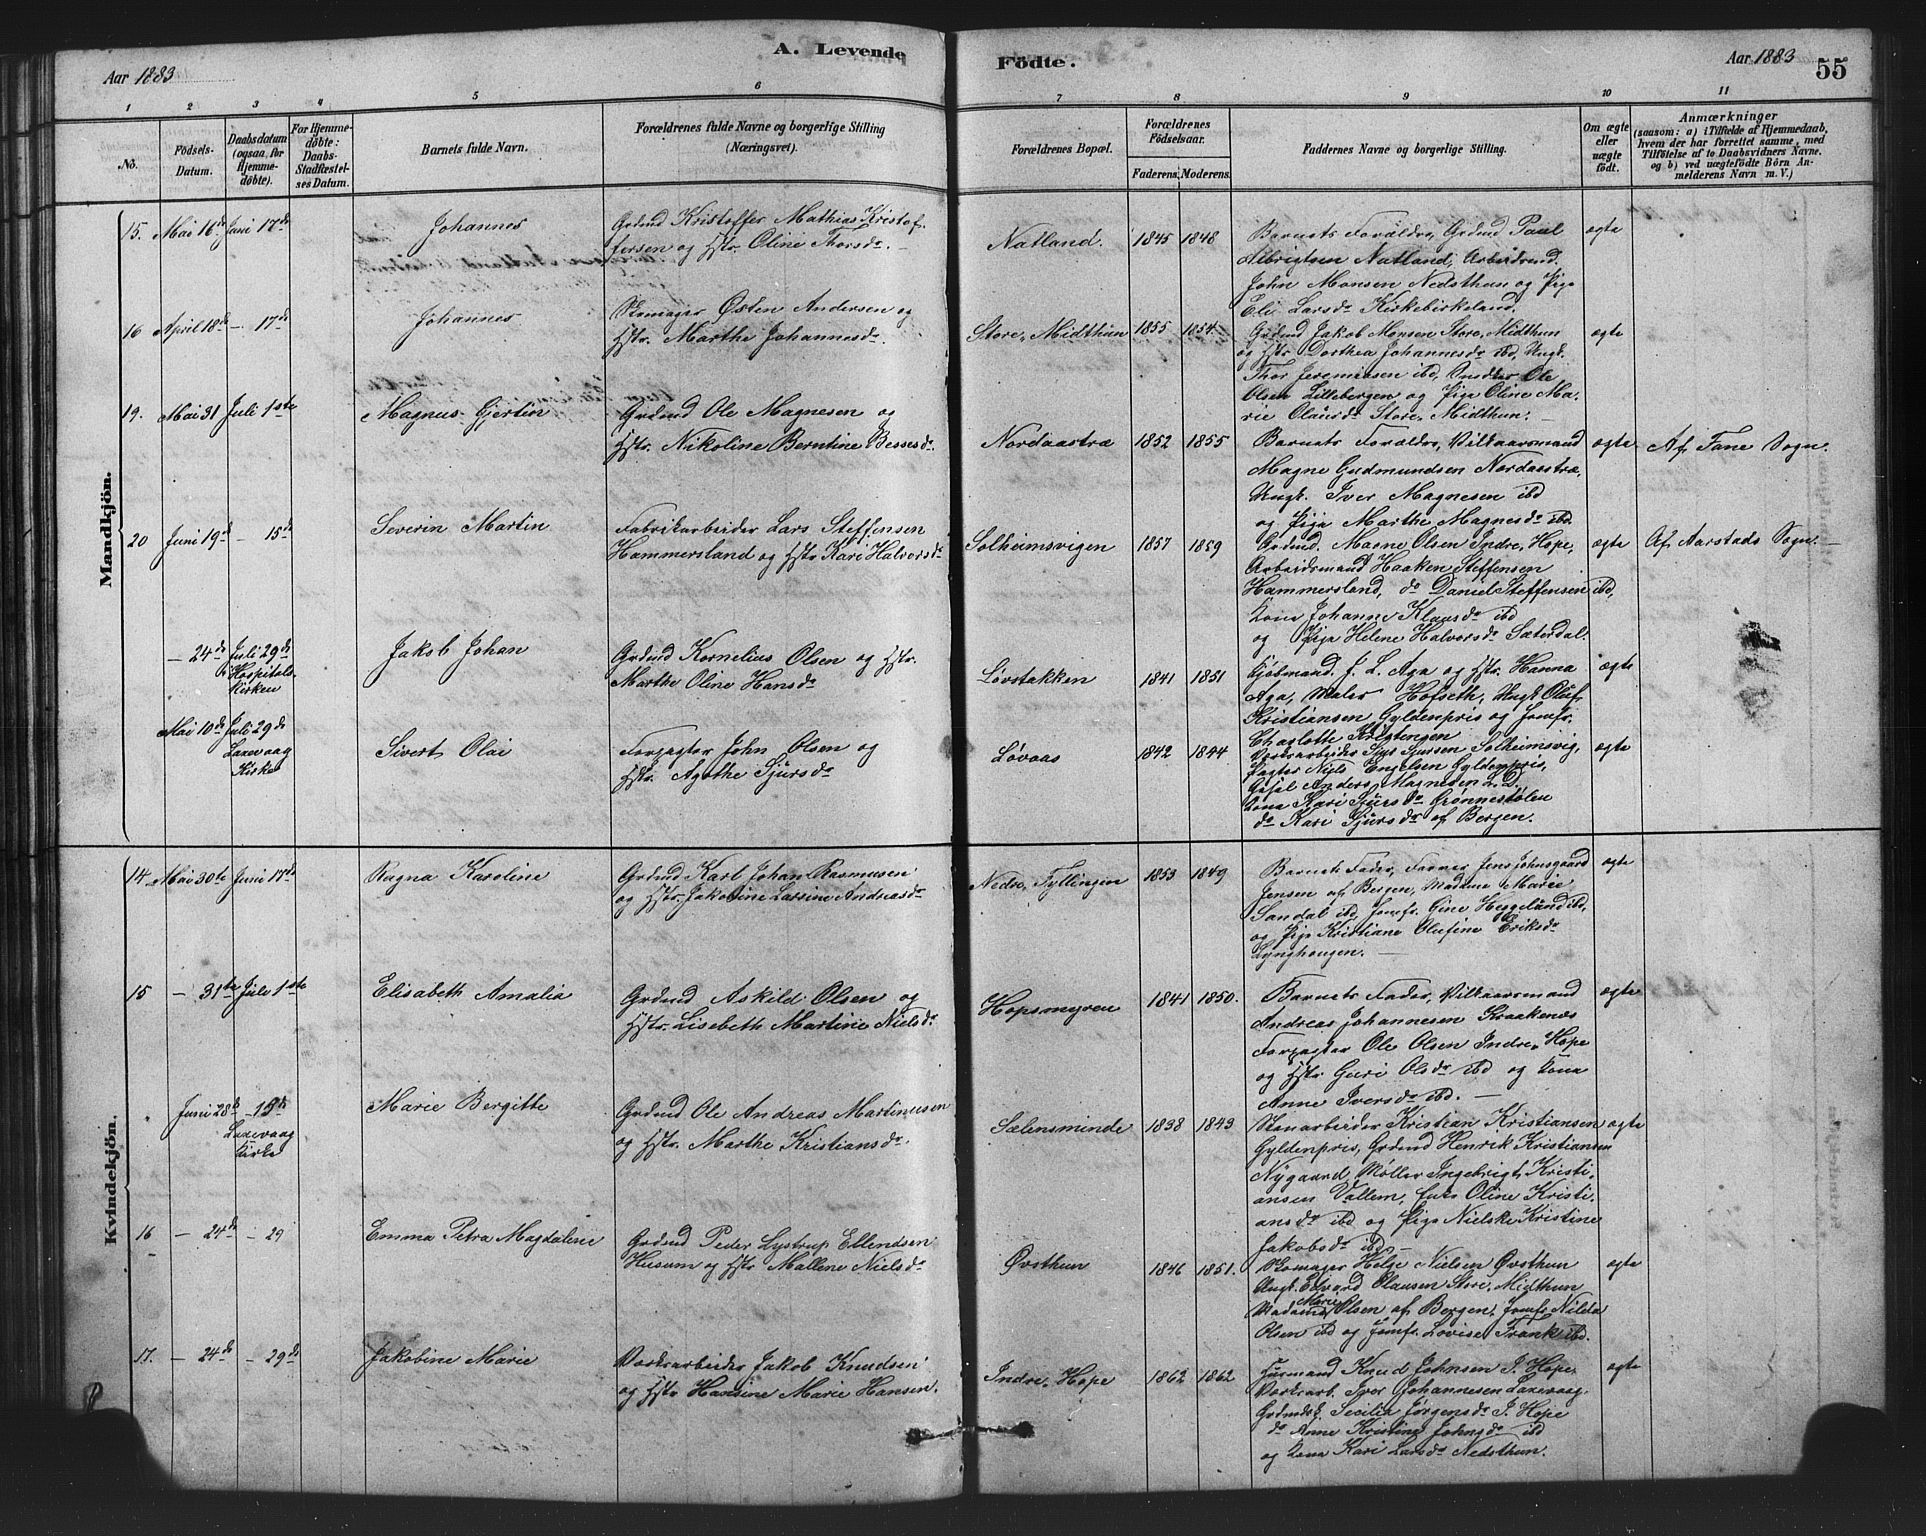 Aar 1883
A. Levende
Fødte.
Aar 1883
55
1 2 3 4 5 6 7 8 9 10 11
No.
Fødsels-
Datum.
Daabsdatum
(ogsaa for
Hjemme-
døbte).
For Hjemme-
døbte:
Daabs-
Stadfæstel-
ses Datum.
Barnets fulde Navn.
Forældrenes fulde Navne og borgerlige Stilling
(Næringsvei).
Forældrenes Bopæl.
Forældrenes
Fødselsaar.
Faderens. Moderens.
Faddernes Navne og borgerlige Stilling.
Om ægte
eller
uægte
født.
Anmærkninger
(saasom: a) i Tilfælde af Hjemmedaab,
hvem der har forrettet samme, med
Tilføielse af to Daabsvidners Navne.
og b) ved uægtefødte Børn An-
melderens Navn m. V.)
Mandkjön.
15. Mai 16de Juni 17de
Johannes
Grdmd Kristoffer Mathias Kristof-
fersen og Hstr. Oline Thorsdr.
Natland.
1845 1848
Barnets Forældre, Grdmd Paul
Albrigtsen Natland, Arbeidsmd.
John Monsen Nedsthun og Pige
Eli Larsdr Kirkebirkeland.
ægte
16 April 18de — 17de
Johannes
Skomager Østen Andersen og
Hstr. Marthe Johannesdr.
Store, Midthun
1855 1854
Grdmd Jakob Monsen Store, Midthun
og Hstr Dorthea Johannesdr ibd, Ungk.
Thor Jeremiasen ibd, Snedker Ole
Olsen Lillebergen og Pige Oline Ma-
rie Olausdr Store, Midthun.
ægte
19. Mai 31 Juli 1ste
Magnus Gjertin
Grdmd Ole Magnesen og
Hstr. Nikoline Berntine Bessesdr.
Nordaastræ
1852 1855
Barnets Forældre, Vilkaarsmand
Magne Gudmundsen Nordaastræ,
Ungk. Iver Magnesen ibd
og Pige Marthe Magnesdr ibd.
ægte
Af Fane Sogn.
20 Juni 19de — 15de
Severin Martin
Fabrikarbeider Lars Steffensen
Hammersland og Hstr Kari Halvorsdr
Solheimsvigen
1857 1859
Grdmd. Magne Olsen Indre, Hope,
Arbeidsmand Haaken Steffensen
Hammersland, do Daniel Steffensen ibd,
Kona Johanne Klausdr ibd
og Pige Helene Halvorsdr Sæterdal.
ægte
Af Aarstads Sogn.
— 24de Juli 29de
Hospitals-
kirken
Jakob Johan
Grdmd Kornelius Olsen og Hstr.
Marthe Oline Hansdr
Løvstakken
1841 1851
Kjøbmand J. L. Aga og Hstr. Hanna
Aga, Maler Hofseth, Ungk Oluf
Kristiansen Gyldenpris og Jomfr.
Charlotte Kristengen
ægte
Mai 10de Juli 29de
Laxevaag
Kirke
Sivert Olai
Forpagter John Olsen og
Hstr. Agathe Sjursdr
Løvaas
1842 1844
Værksarbeider Sjur Sjursen Solheimsvig,
Pagter Niels Engelsen Gyldenpris,
Gasel Anders Magnesen L.D.
Kona Kari Sjursdr Grønnestølen
do Kari Sjursdr af Bergen.
ægte
Kvindekjön.
14 Mai 30te Juni 17de
Ragna Karoline
Grdmd Karl Johan Rasmusen
og Hstr. Jakobine Larsine Andreasdr
Nedre, Fyllingen
1853 1849
Barnets Fader, Farver Jens Johnsgaard
Jensen af Bergen, Madame Marie
Sandal ibd, Jomfr. Gine Heggelund ibd,
og Pige Kristiane Olufine Eriksdr
Lynghaugen.
ægte
15 — 31te Juli 1ste
Elisabeth Amalia
Grdmd Askild Olsen og
Hstr. Lisebeth Martine Nielsdr.
Hopsmyren
1841 1850.
Barnets Fader, Vilkaarsmand
Andreas Johannesen Kraakenæs
Forpagter Ole Olsen Indre, Hope
og Hstr Guri Olsdr ibd og Kona
Anne Iversdr ibd.
ægte
Juni 28de — 15de
Laxevaag
Kirke
Marie Bergitte
Grdmd Ole Andreas Martinusen
og Hstr. Marthe Kristiansdr.
Sælensminde
1838 1843
Stenarbeider Kristian Kristiansen
Gyldenpris, Grdmd Henrik Kristiansen
Nygaard, Møller Ingebrigt Kristi-
ansen Vallem, Enke Oline Kristi-
ansdr ibd og Pige Nielske Kristine
Jakobsdr ibd —
ægte
16 — 24de — 29
Emma Petra Magdalene
Grdmd Peder Lystrup Ellendsen
Husum og Hstr Mallene Nielsdr
Øvsthun
1846 1851.
Skomager Helge Nielsen Øvsthun
Ungk. Edvard Olausen Store, Midthun
Madame Marie Olsen af Bergen, Jomfr. Nilda
Olsen ibd og Jomfr. Lovise Frank ibd.
ægte
17. — 24de — 29de
Jakobine Marie
Værksarbeider Jakob Knudsen
og Hstr Hansine Marie Hansen.
Indre, Hope
1862 1862
Furmand Knud Johnsen I. Hope
Værksarb. Iver Johannesen Laxevaag.
Grdmdsk. Secilia Jørgensdr I. Hope
do Anne Kristine Johnsdr ibd
og Kona Kari Larsdr Nedsthun.
ægte